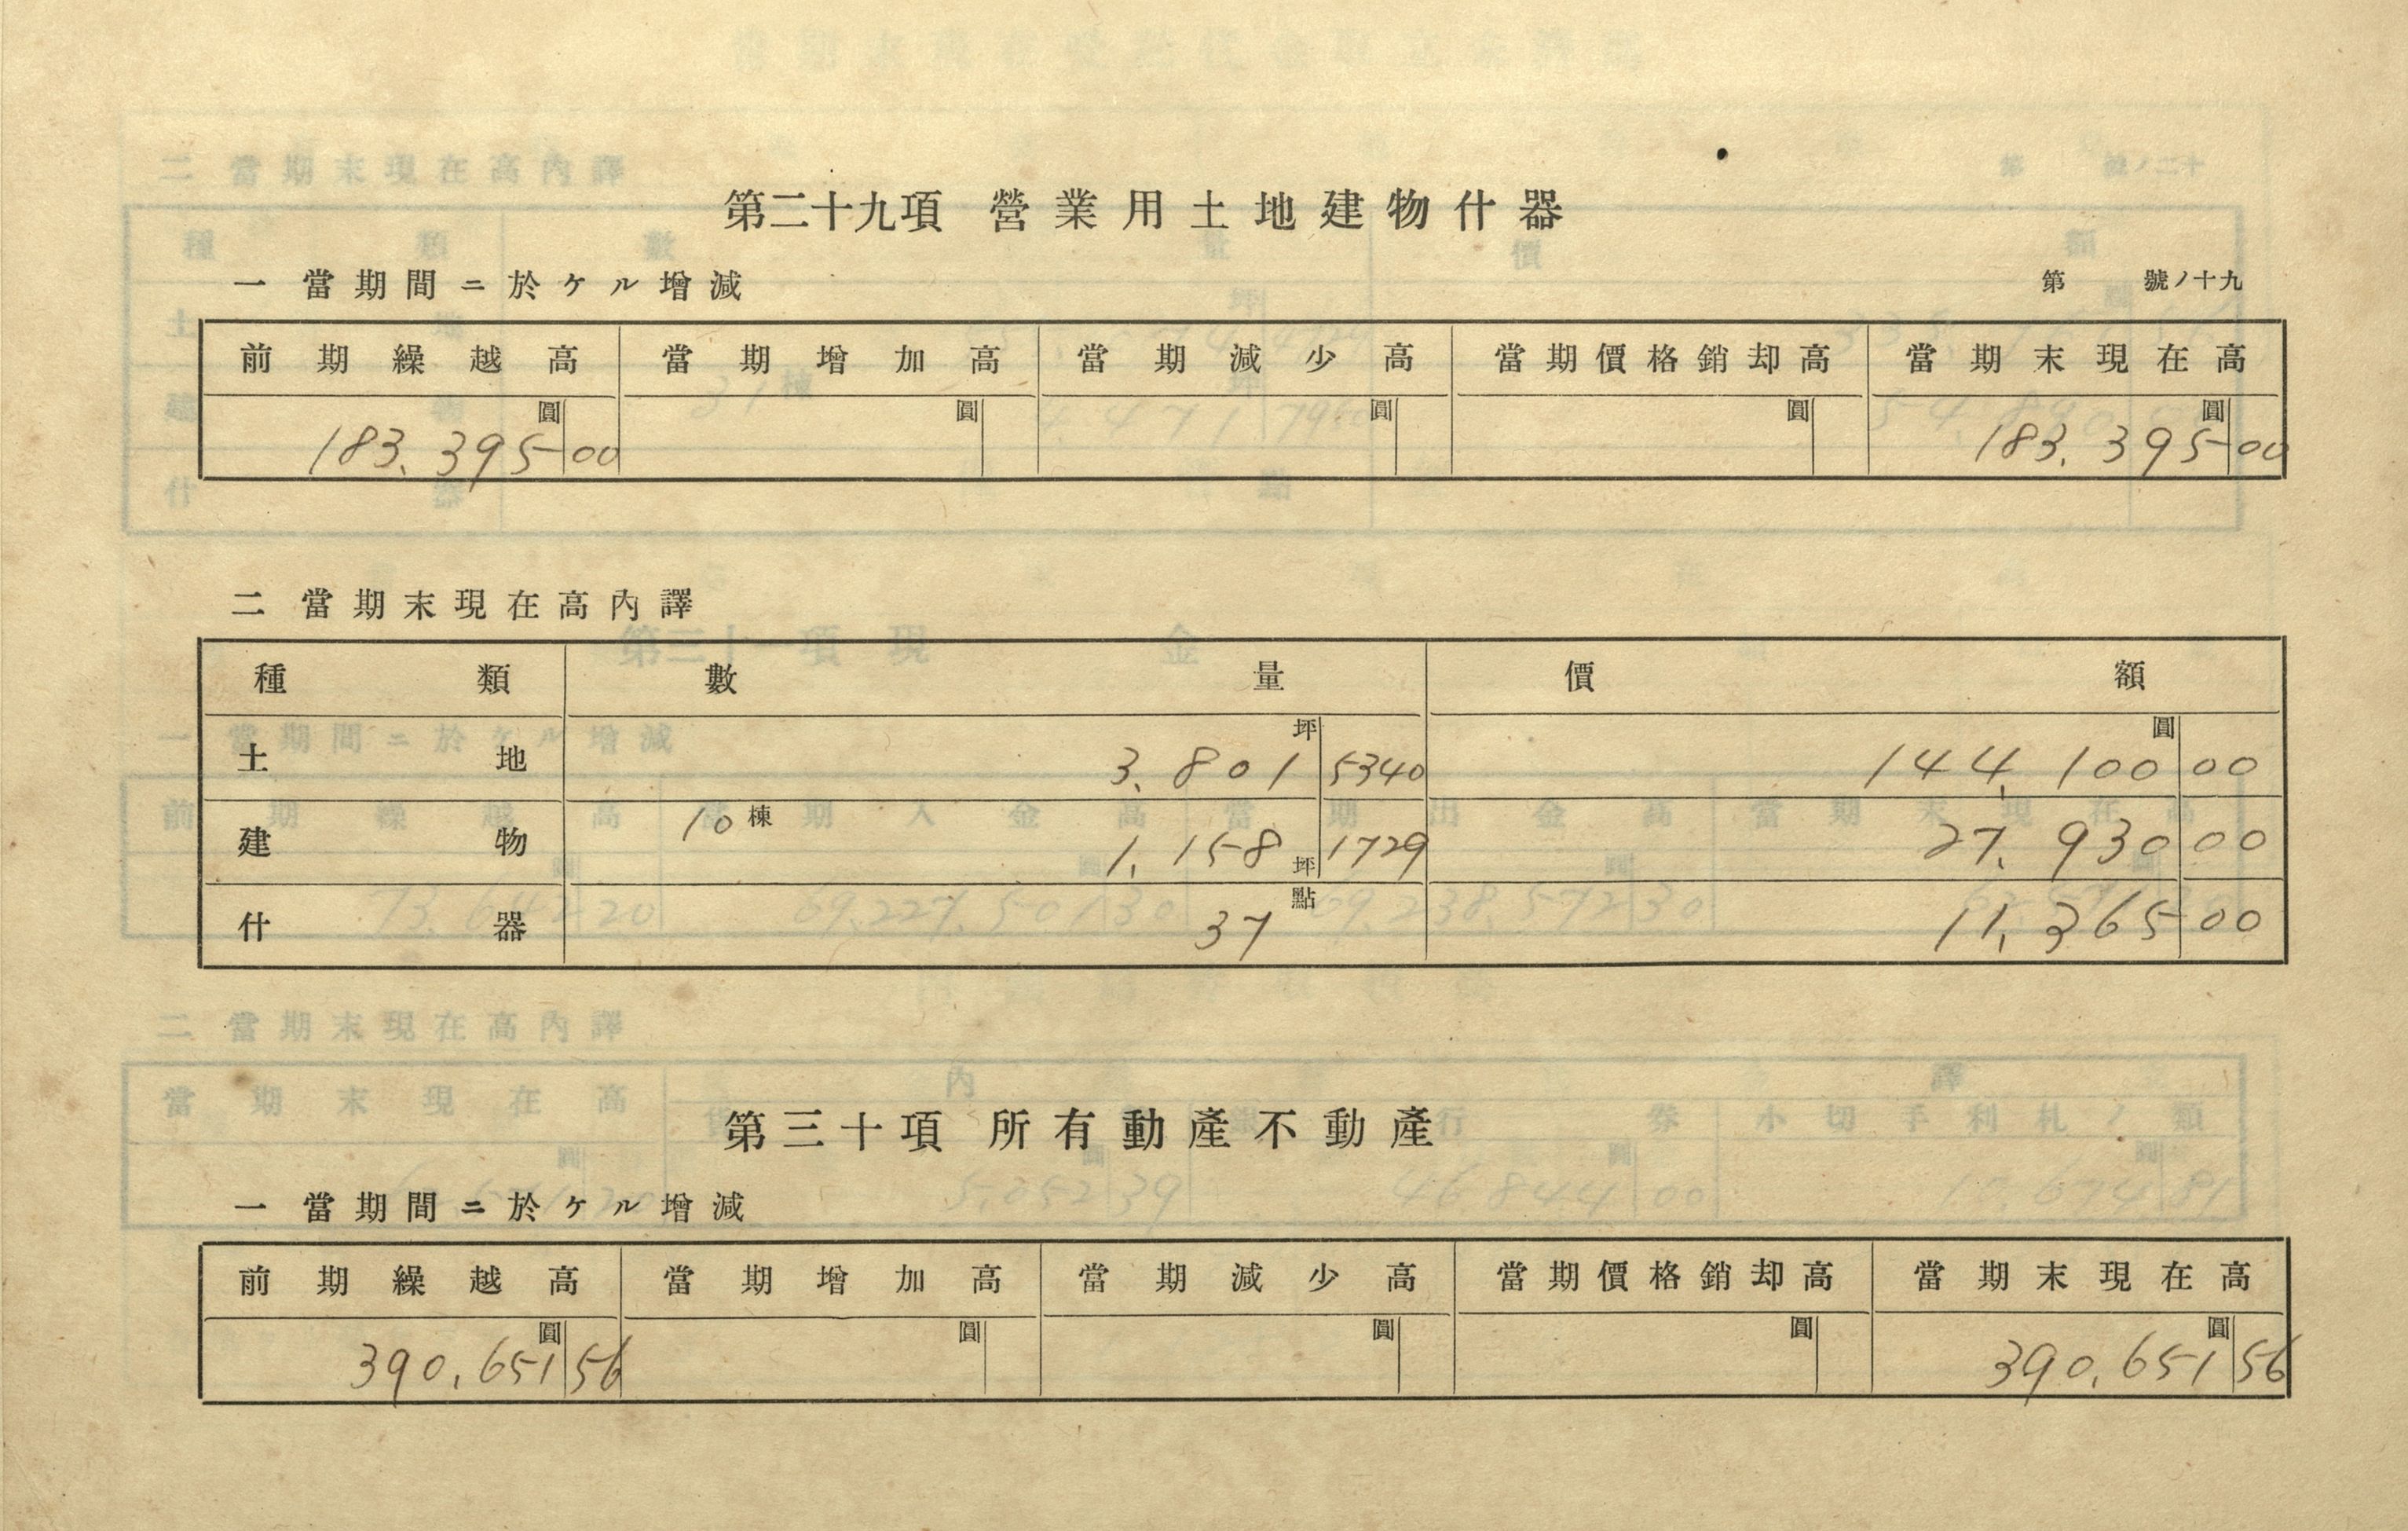 第二十九項 營業用土地建物什器
一 當期間ニ於ケル增減
第 號ノ十九
前期繰越高 當期增加高 當期減少高 當期價格銷却高 當期末現在高
圓 圓 圓 圓 圓
183,395 00 183,395 00
二 當期末現在高內譯
種類 數量 價額
土地 3,801坪5340 144,100圓00
建物 10棟 1,158坪1729 27,930 00
什器 37點 11,365 00
第三十項 所有動產不動產
一 當期間ニ於ケル增減
前期繰越高 當期增加高 當期減少高 當期價格銷却高 當期末現在高
圓 圓 圓 圓 圓
390,651 56 390,651 56